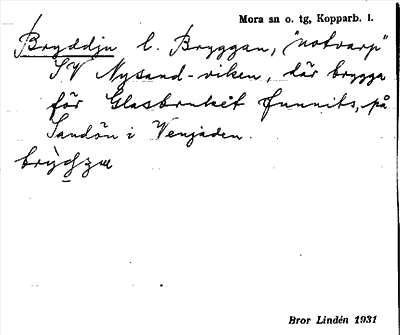 Mora sn o. tg, Kopparb. l.
Bryddju l. Bryggan, "notvarp"
SV Nysand-viken, där brygga
för Glasbruket funnits, på
Sandön i Venjaden.
Bror Lindén 1931